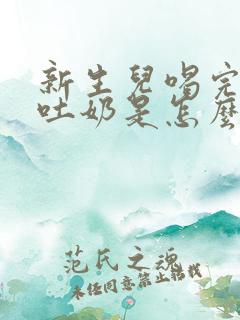 新生兒喝完
吐奶是怎麼
范氏之魂
未经同意禁止转载